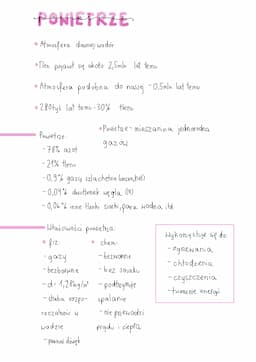 POWIETRZE
• Atmosfera dawniej wodór
• Tlen pojawił się około 2,5mln lat temu
• Atmosfera podobna do naszej - 0,5mln lat temu
• 280tyś lat temu - 30% tlenu
• Powietrze - mieszanina jednorodna
gazów
Powietrze:
- 78% azot
- 21% tlenu
- 0,9% gazy szlachetne
- 0,04% dwutlenek węgla
- 0,06% inne tlenki siarki, para wodna itd
Właściwości powietrza:
• fiz:
- gazy
- bezbarwne
- d = 1,2kg/m³
- słaba rozpu-
szczalność w
wodzie
- przewodzi dźwięk
• chem:
- bezwonne
- bez smaku
- podtrzymuje
spalanie
- nie przewodzi
prądu i ciepła
Wykorzystuje się do:
- ogrzewania
- chłodzenia
- czyszczenia
- tworzenie energii